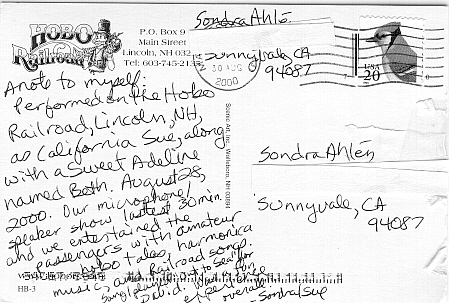 HOBO
Railroad
P.O. Box 9
Main Street
Lincoln, NH 032
Tel: 603-745-213
Sondra Ahlén
Sunnyvale, CA
94087
30 AUG
2000
USA
20
A note to myself:
Performed on the Hobo
Railroad, Lincoln, NH,
as California Sue, along
with a Sweet Adeline
named Beth. August 28,
2000. Our microphone/
speaker show lasted 30 min.
and we entertained the
passengers with amateur
hobo tales, harmonica
music, and railroad songs.
David. Was a fun
experience
overall!
Sondra Sue
Scenic Art, Inc. Wolfeboro, NH 03894
Sondra Ahlén
Sunnyvale, CA
94087
HB-3